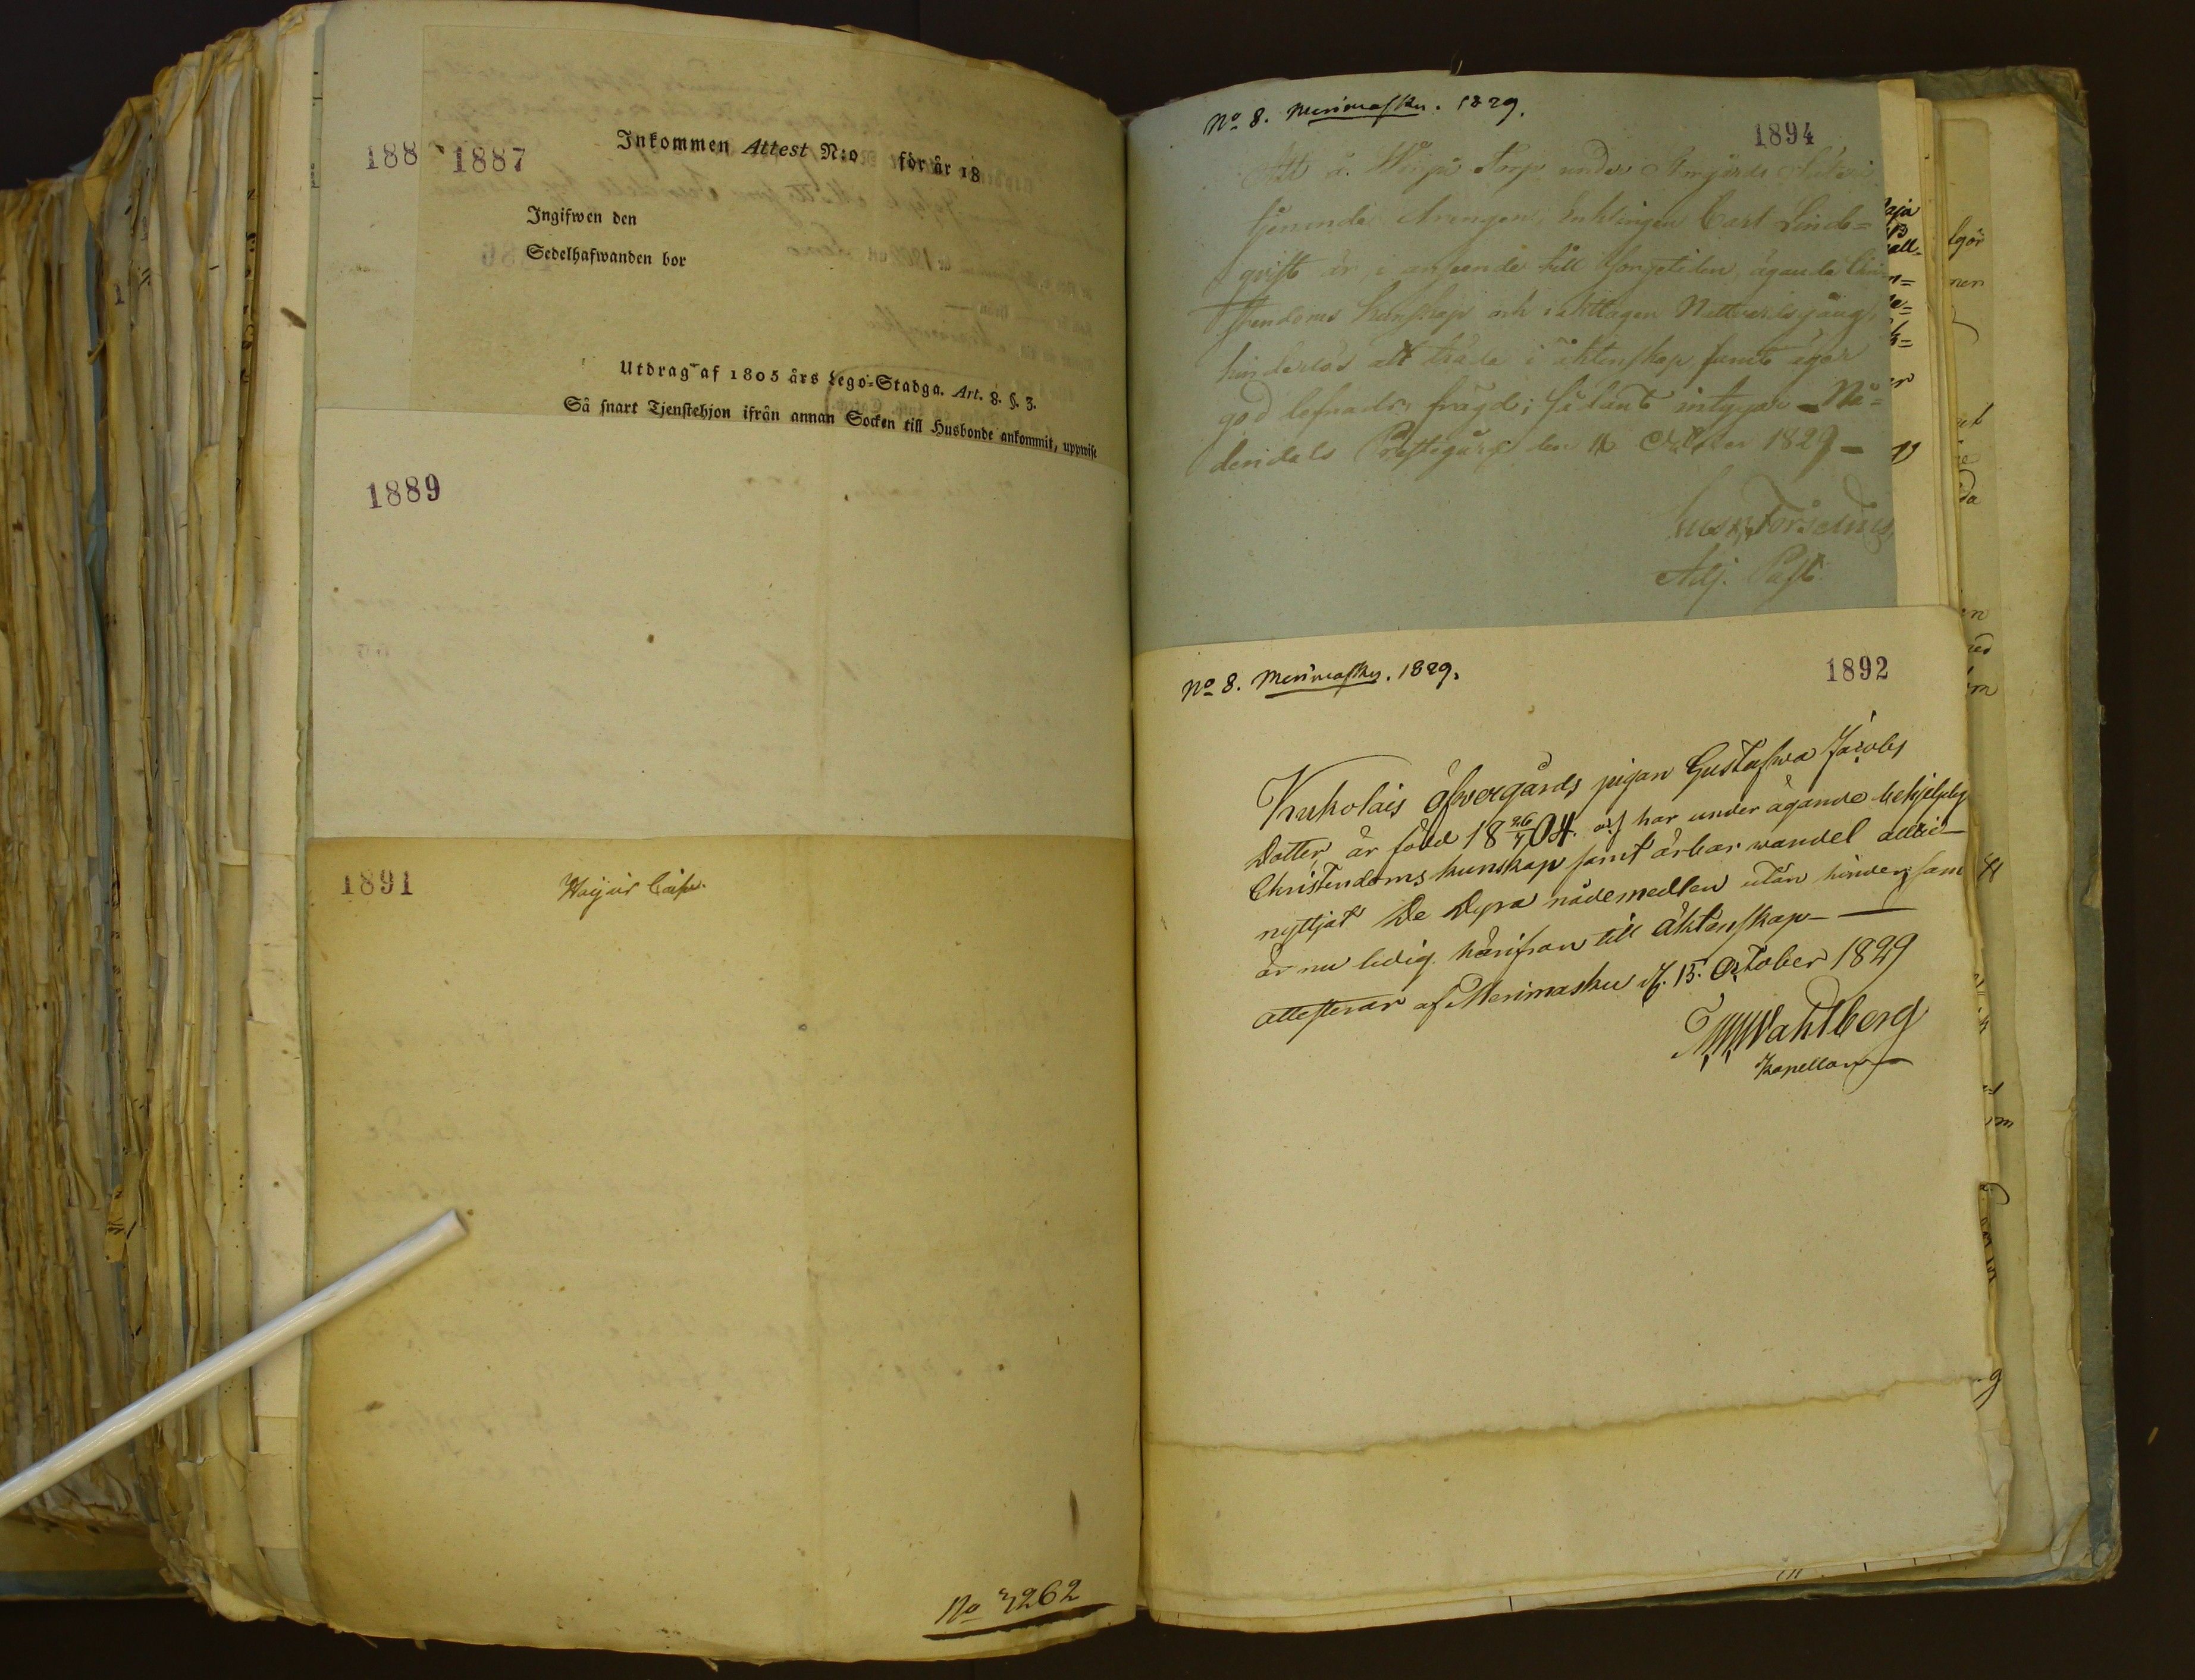 188
1887
Inkommen Attest N:o för år 18
Ingifwen den
Sedelhafwanden bor
Utdrag af 1805 års Lego-Stadga. Art. 8. §. 3.
Så snart Tjenstehjon ifrån annan Socken till Husbonde ankommit, uppwise
1889
1891
No 4262
No 8. Merimasku. 1829.
1894
Att å Torp under
tjenande Drengen, Enklingen Carl Lind=
qvist är i anseende till sorgetiden, ägande Chri=
stendoms kunskap och Nattvardsgång,
hinderlös att träda i äktenskap samt äger
god lefnads frägd; sålunt intygar Nå=
dendals Prestegård den 16 October 1829
Forselius
Adj. Past.
No 8. Merimasku. 1829.
1892
Kukolais öfvergårds pigan Gustafwa Jacobs
Dotter är född 18 26/7 04. och har under ägande behjelplig
Christendoms kunskap samt ärbar wandel alltid
nyttjat De Dyra nådemedlen utan hinder, samt
är nu ledig härifrån till äktenskap
attesterar af Merimasku d. 15. October 1829
Wahlberg
Kapellan